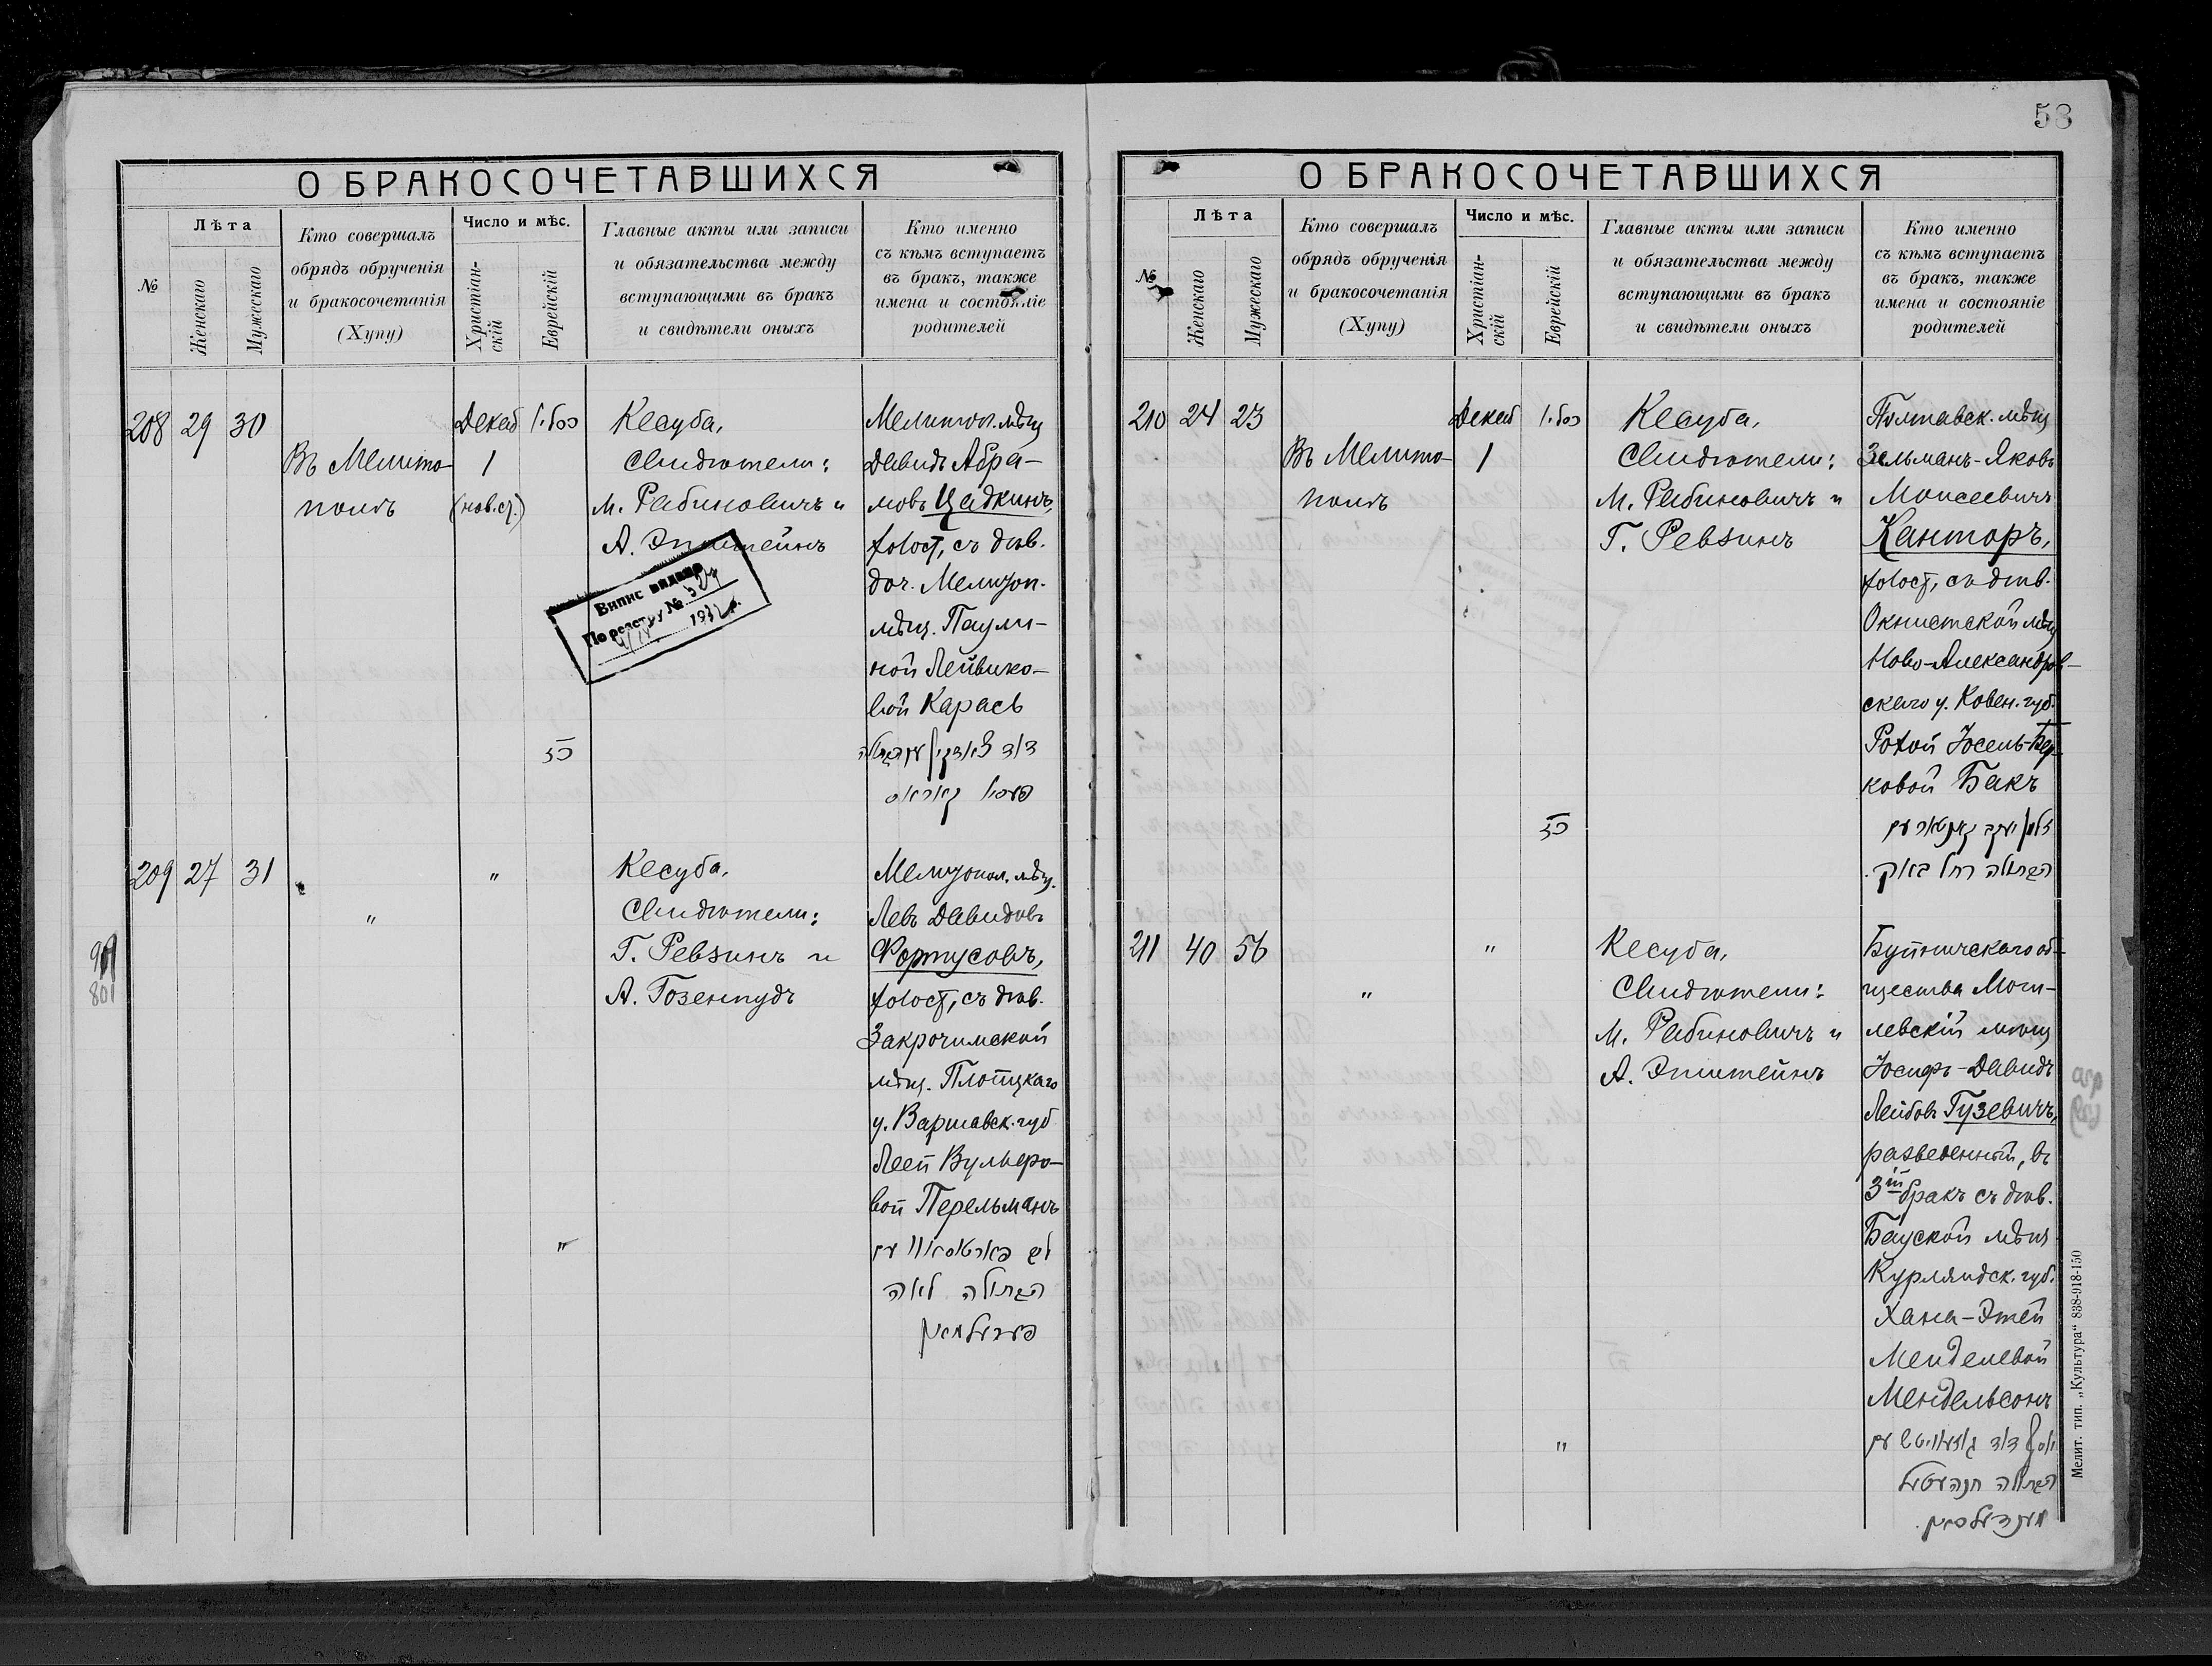 58
О БРАКОСОЧЕТАВШИХСЯ
№
Лѣта
Женскаго
Мужескаго
Кто совершалъ
обрядъ обрученія
и бракосочетанія
(Хупу)
Число и мѣс.
Христіан-
скій
Еврейскій
Главные акты или записи
и обязательства между
вступающими въ бракъ
и свидѣтели оныхъ
Кто именно
съ кѣмъ вступаетъ
въ бракъ, также
имена и состояніе
родителей
208 29 30
Въ Мелито-
полѣ
Декаб
1
(нов.ст.)
Кесуба,
Свидѣтели:
М. Рабиновичъ и
А. Эпштейнъ
Випис видано
По реєстру №
193
Мелитоп. мѣщ
Давидъ Абра-
мовъ Цадкинъ,
холост, съ дѣв.
доч. Мелитоп.
мѣщ. Паули-
ной Лейвико-
вой Карась
209 27 31
"
"
Кесуба,
Свидѣтели:
Г. Ревзинъ и
А. Гозенпудъ
Мелитопол. мѣщ.
Левъ Давидовъ
Фортусовъ,
холост, съ дѣв.
Закрочимской
мѣщ. Плотцкаго
у. Варшавск. губ
Леей Вульфо-
вой Перельманъ
"
הבתולה לאה
פערעלמאן
801
О БРАКОСОЧЕТАВШИХСЯ
№
Лѣта
Женскаго
Мужескаго
Кто совершалъ
обрядъ обрученія
и бракосочетанія
(Хупу)
Число и мѣс.
Христіан-
скій
Еврейскій
Главные акты или записи
и обязательства между
вступающими въ бракъ
и свидѣтели оныхъ
Кто именно
съ кѣмъ вступаетъ
въ бракъ, также
имена и состояніе
родителей
210 24 23
Въ Мелито-
полѣ
Декаб
1
Кесуба,
Свидѣтели:
М. Рабиновичъ и
Г. Ревзинъ
Полтавск. мѣщ
Зельманъ-Яковъ
Моисеевичъ
Канторъ,
холост, съ дѣв.
Окнистской мѣщ
Ново-Александров-
скаго у. Ковен. губ.
Рохой Іосель-Бер-
ковой Бакъ
זלמן יעקב קאנטאר עם
הבתולה רחל באק.
211 40 56
"
"
Кесуба,
Свидѣтели:
М. Рабиновичъ и
А. Эпштейнъ
Буйничскаго об-
щества Моги-
левскій мѣщ
Іосифъ-Давидъ
Лейбовъ Гузевичъ,
разведенный, въ
3й бракъ съ дѣв.
Бауской мѣщ.
Курляндск. губ.
Хана-Этей
Менделевой
Мендельсонъ
"
יוסף דוד גוזעוויטש עם
הבתולה חנה עטיל
מענדעלסאן.
Мелит. тип. „Культура“ 838-918-150